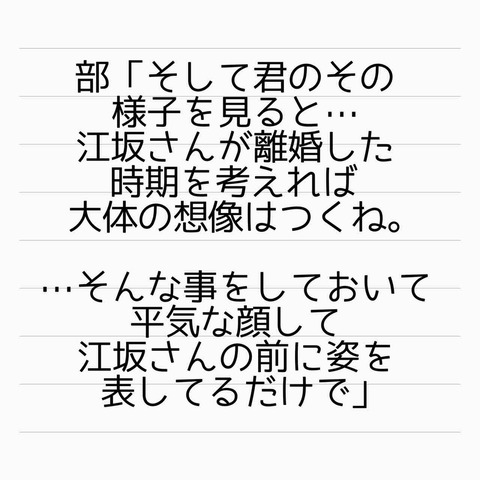 部「そして君のその
様子を見ると…
江坂さんが離婚した
時期を考えれば
大体の想像はつくね。
…そんな事をしておいて
平気な顔して
江坂さんの前に姿を
表してるだけで」